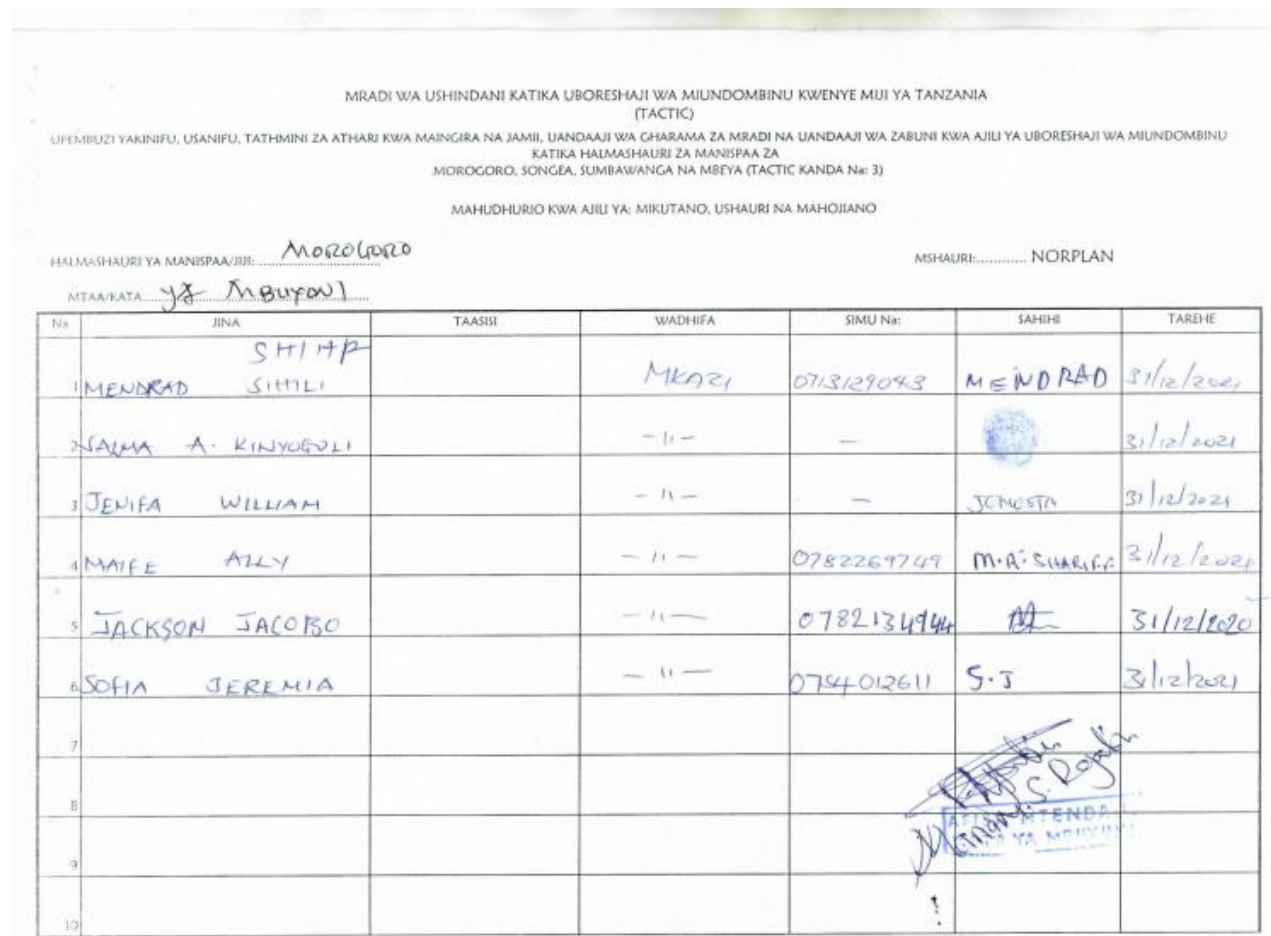 MRADI WA USHINDANI KATIKA UBORESHAJI WA MIUNDOMBINU KWENYE MIJI YA TANZANIA
(TACTIC)
UPEMBUZI YAKINIFU, USANIFU, TATHMINI ZA ATHARI KWA MAINGIRA NA JAMII, UANDAAJI WA GHARAMA ZA MRADI NA UANDAAJI WA ZABUNI KWA AJILI YA UBORESHAJI WA MIUNDOMBINU
KATIKA HALMASHAURI ZA MANISPAA ZA
MOROGORO, SONGEA, SUMBAWANGA NA MBEYA (TACTIC KANDA Na: 3)
MAHUDHURIO KWA AJILI YA: MIKUTANO, USHAURI NA MAHOJIANO
HALMASHAURI YA MANISPAA/JIJI: MOROGORO MSHAURI:............ NORPLAN
MTAA/KATA YA MBUYONI
Na JINA TAASISI WADHIFA SIMU Na: SAHIHI TAREHE
1 MENDRAD SIHILI MKAZI 0713129043 MENDRAD 31/12/2021
2 SALMA A. KINYOGOLI -11- - 31/12/2021
3 JENIFA WILLIAM -11- - JENESTA 31/12/2021
4 MAIFE ALLY -11- 0782269749 M.A. SHARIFF 31/12/2021
5 JACKSON JACOBO -11- 0782134944 31/12/2020
6 SOFIA JEREMIA -11- 0754012611 S.J 31/12/2021
7
8
AFISA MTENDA
YA
9
10